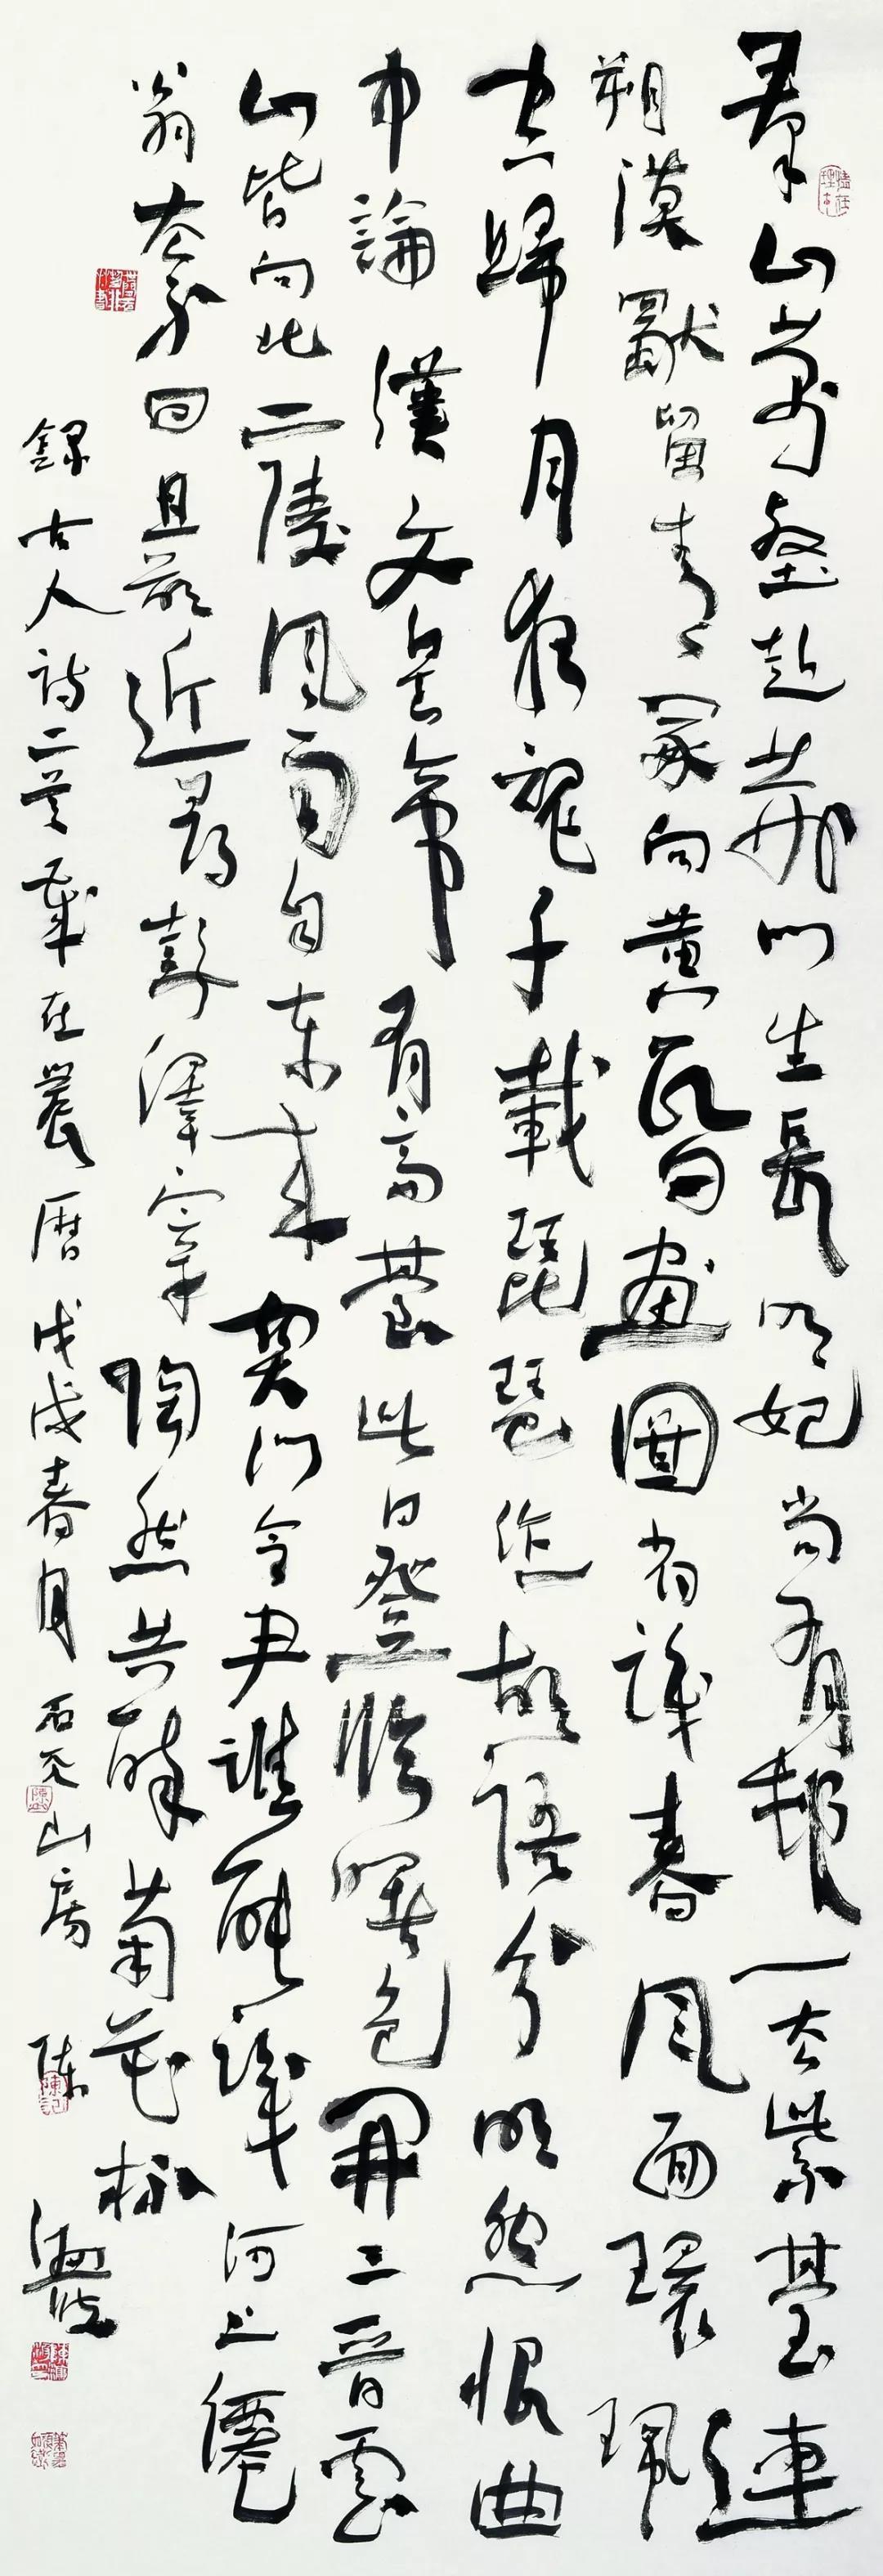 羣山萬壑赴荊門生長明妃尚有邨一去紫臺連
朔漠獨留青冢向黃昏畫圖省識春風面環珮
空歸月夜魂千載琵琶作胡語分明怨恨曲
中論漢文皇帝有高臺此日登臨曙色開三晉雲
山皆向北二陵風雨自東來關門令尹誰能識河上僊
翁去不回且欲近尋彭澤宰陶然共醉菊花杯
錄古人詩二首歲在農曆戊戌春月石山房陳